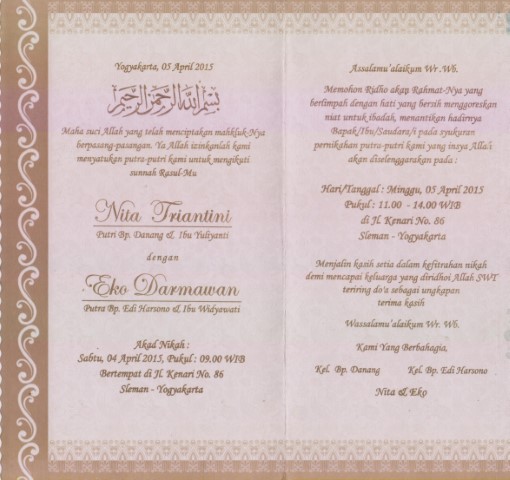 Yogyakarta, 05 April 2015
بسم الله الرحمن الرحيم
Maha suci Allah yang telah menciptakan mahkluk-Nya
berpasang-pasangan. Ya Allah izinkanlah kami
menyatukan putra-putri kami untuk mengikuti
sunnah Rasul-Mu
Nita Triantini
Putri Bp. Danang & Ibu Yuliyanti
dengan
Eko Darmawan
Putra Bp. Edi Harsono & Ibu Widyawati
Akad Nikah :
Sabtu, 04 April 2015, Pukul : 09.00 WIB
Bertempat di Jl. Kenari No. 86
Sleman - Yogyakarta
Assalamu'alaikum Wr. Wb.
Memohon Ridho akan Rahmat-Nya yang
berlimpah dengan hati yang bersih menggoreskan
niat untuk ibadah, menantikan hadirnya
Bapak/Ibu/Saudara/i pada syukuran
pernikahan putra-putri kami yang insya Allah
akan diselenggarakan pada :
Hari/Tanggal : Minggu, 05 April 2015
Pukul : 11.00 - 14.00 WIB
di Jl. Kenari No. 86
Sleman - Yogyakarta
Menjalin kasih setia dalam kefitrahan nikah
demi mencapai keluarga yang diridhoi Allah SWT
teriring do'a sebagai ungkapan
terima kasih
Wassalamu'alaikum Wr. Wb.
Kami Yang Berbahagia,
Kel. Bp. Danang Kel. Bp. Edi Harsono
Nita & Eko